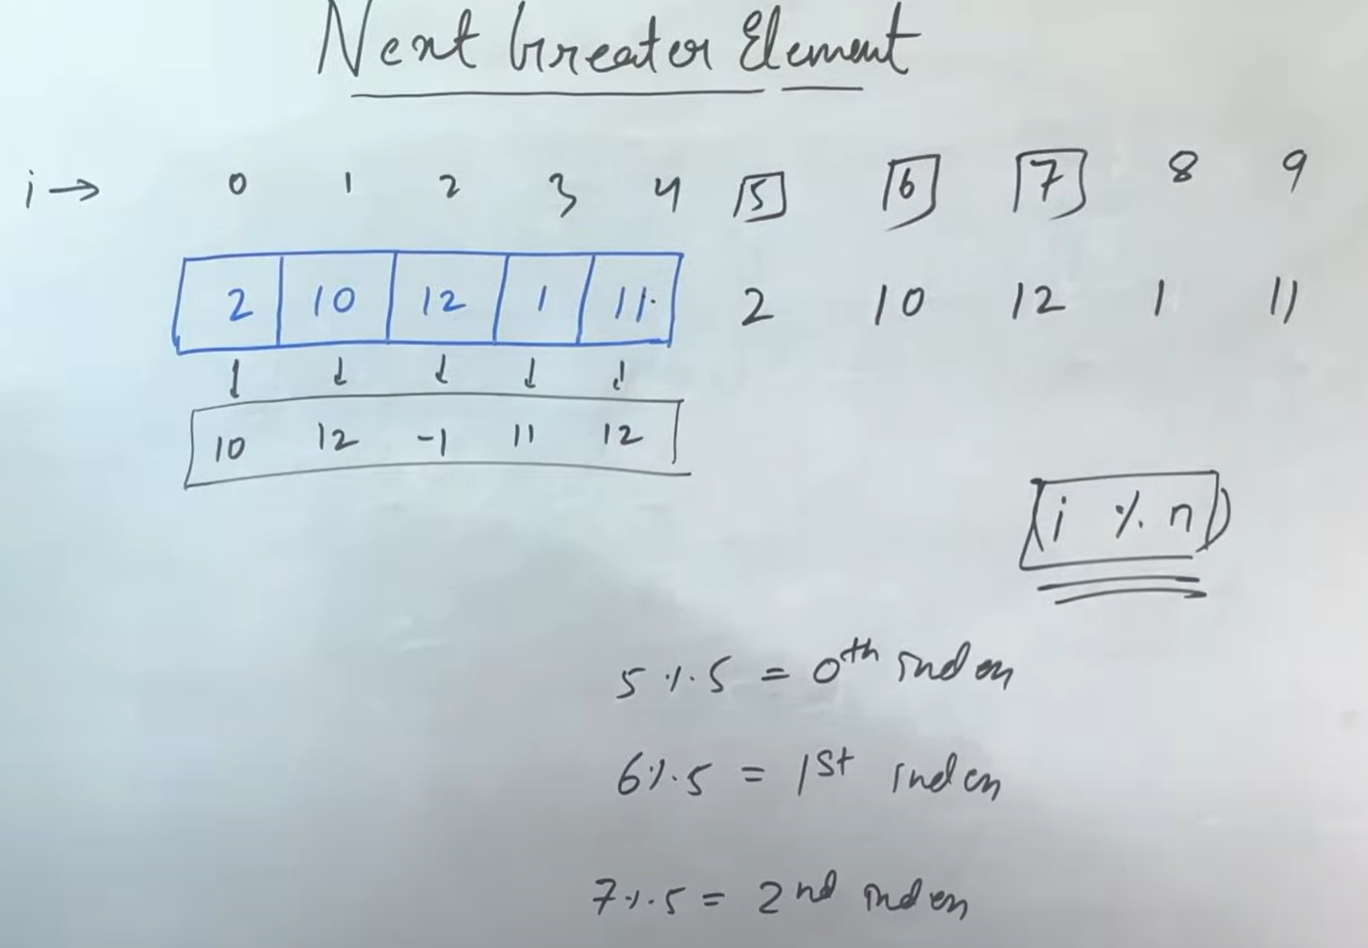 Next Greater Element
i → 0 1 2 3 4 5 6 7 8 9
2 10 12 1 11 2 10 12 1 11
↓ ↓ ↓ ↓ ↓
10 12 -1 11 12
(i % n)
5 % 5 = 0th index
6 % 5 = 1st index
7 % 5 = 2nd index